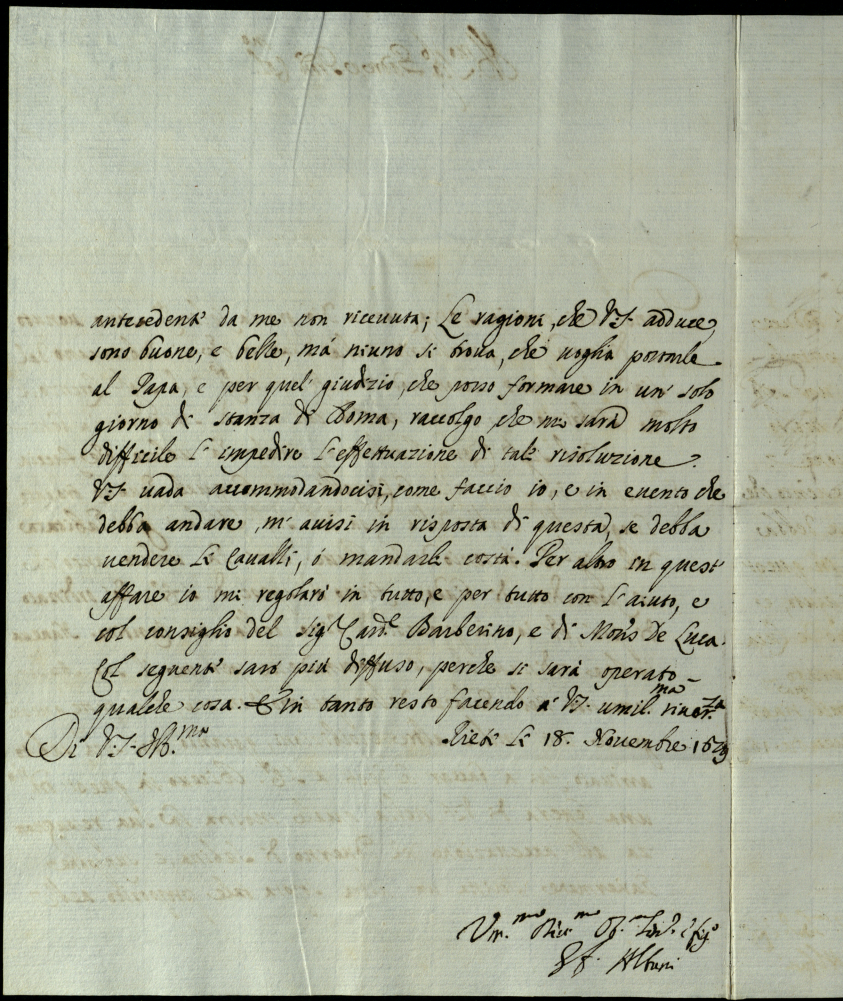 antecedente da me non riceuuta; Le ragioni, che V.S. adduce,
sono buone, e belle, mà niuno si troua, che uoglia portarle
al Papa, e per quel giudizio, che posso formare in un' solo
giorno di stanza di Roma, raccolgo che mi sarà molto
difficile l'impedire l'effettuazione di tale risoluzione.
V.S. uada accommodandocisi, come faccio io, e in euento che
debba andare, m'auisi in risposta di questa, se debba
uendere li Caualli, ò mandarli costà. Per altro in quest'
affare io mi regolarò in tutto, e per tutto con l'aiuto, e
col consiglio del Sig.r Card.l Barberino, e di Mons. De Luca.
Col seguente sarò più diffuso, perche si sarà operato
qualche cosa. E in tanto resto facendo à V.S. umil.ma riuer.za
Di V.S.
li 18. Nouembre
Albani